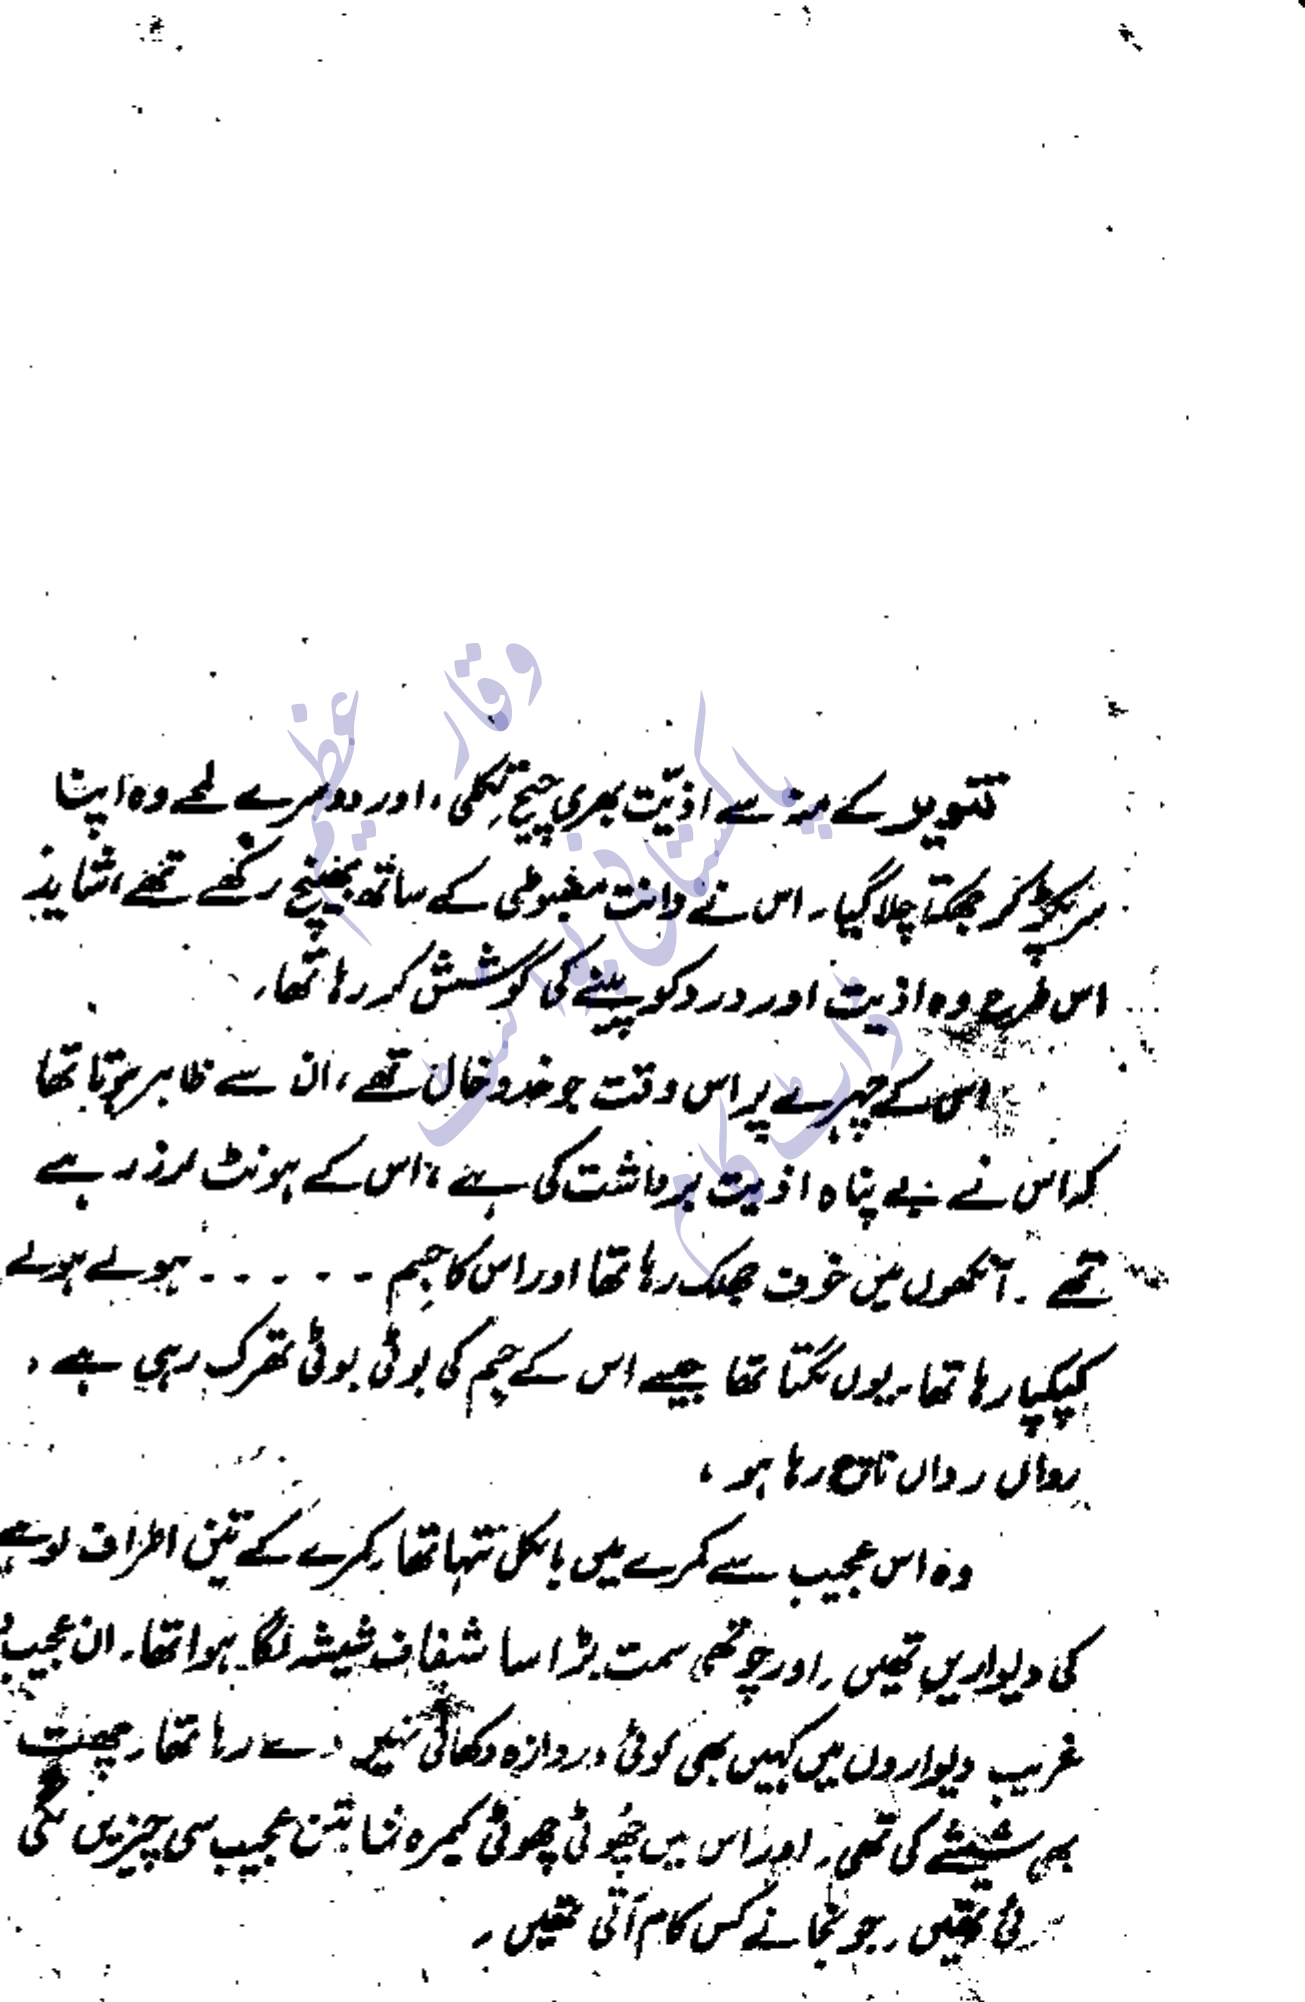 تنویر کے منہ سے اذیّت بھری چیخ نِکلی، اور دوسرے لمحے وہ اپنا
سر پکڑ کر جھکتا چلا گیا۔ اس نے دانت مضبوطی کے ساتھ بھینچ رکھے تھے، شاید
اس طرح وہ اذیت اور درد کو پینے کی کوشش کر رہا تھا۔
اس کے چہرے پر اس وقت جو خدوخال تھے، ان سے ظاہر ہوتا تھا
کہ اس نے بے پناہ اذیت برداشت کی ہے، اس کے ہونٹ لرز رہے
تھے۔ آنکھوں میں خوف جھلک رہا تھا اور اس کا جسم ۔ ۔ ۔ ۔ ۔ ہولے ہولے
کپکپا رہا تھا۔ یوں لگتا تھا جیسے اس کے جسم کی بوٹی بوٹی تھرک رہی ہے۔
رواں رواں ناچ رہا ہو،
وہ اس عجیب سے کمرے میں بالکل تنہا تھا۔ کمرے کے تین اطراف لوہے
کی دیواریں تھیں۔ اور چوتھی سمت بڑا سا شفاف شیشہ لگا ہوا تھا۔ ان عجیب و
غریب دیواروں میں کہیں بھی کوئی دروازہ دکھائی نہیں دے رہا تھا۔ چھت
بھی شیشے کی تھی۔ اور اس میں چھوٹی چھوٹی کیمرہ نما بٹن عجیب سی چیزیں لگی
ہوئی تھیں۔ جو نجانے کس کام آتی تھیں۔
وقار عظیم
پاکستانی پوائنٹ
ڈاٹ کام